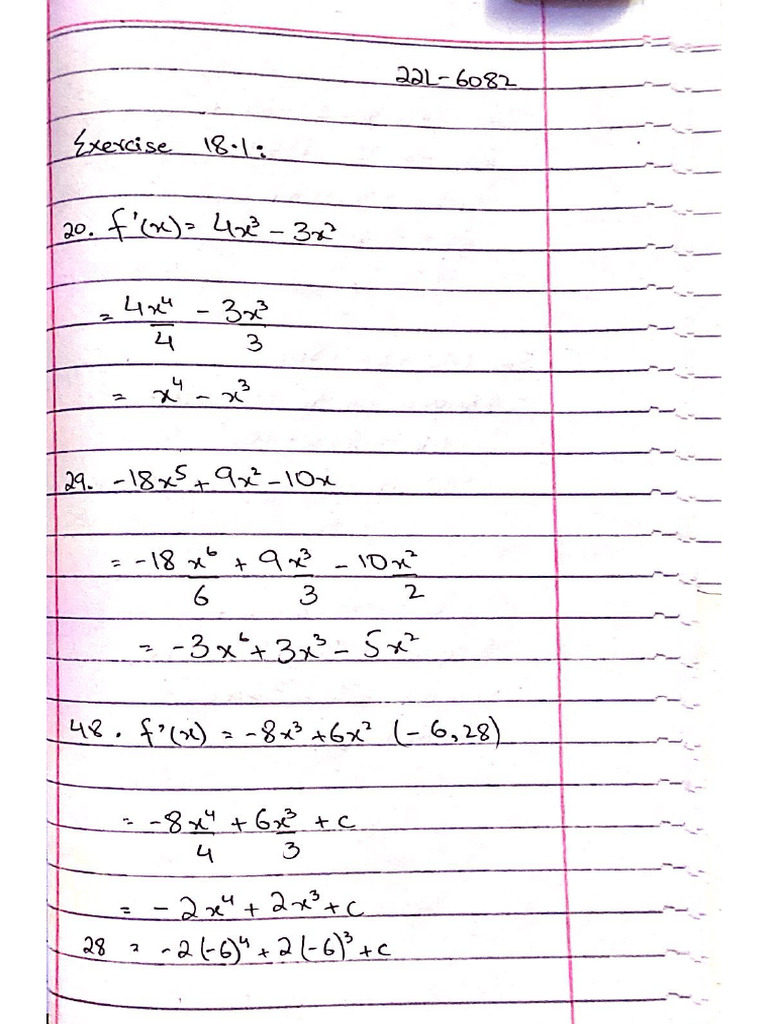 22L-6082
Exercise 18.1:
20. f'(x) = 4x³ - 3x²
= 4x⁴/4 - 3x³/3
= x⁴ - x³
29. -18x⁵ + 9x² - 10x
= -18x⁶/6 + 9x³/3 - 10x²/2
= -3x⁶ + 3x³ - 5x²
48. f'(x) = -8x³ + 6x² (-6, 28)
= -8x⁴/4 + 6x³/3 + c
= -2x⁴ + 2x³ + c
28 = -2(-6)⁴ + 2(-6)³ + c